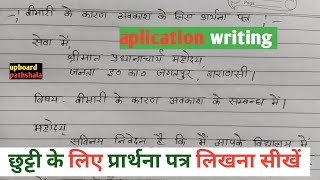 बीमारी के कारण अवकाश के लिए प्रार्थना पत्र
aplication writing
सेवा में,
श्रीमान प्रधानाचार्य महोदय
upboard
pathshala
जनता इ० का० जगतपुर, वाराणसी।
विषय- बीमारी के कारण अवकाश के सम्बन्ध में।
महोदय
सविनय निवेदन है कि मैं आपके विद्यालय में
छुट्टी के लिए प्रार्थना पत्र लिखना सीखें